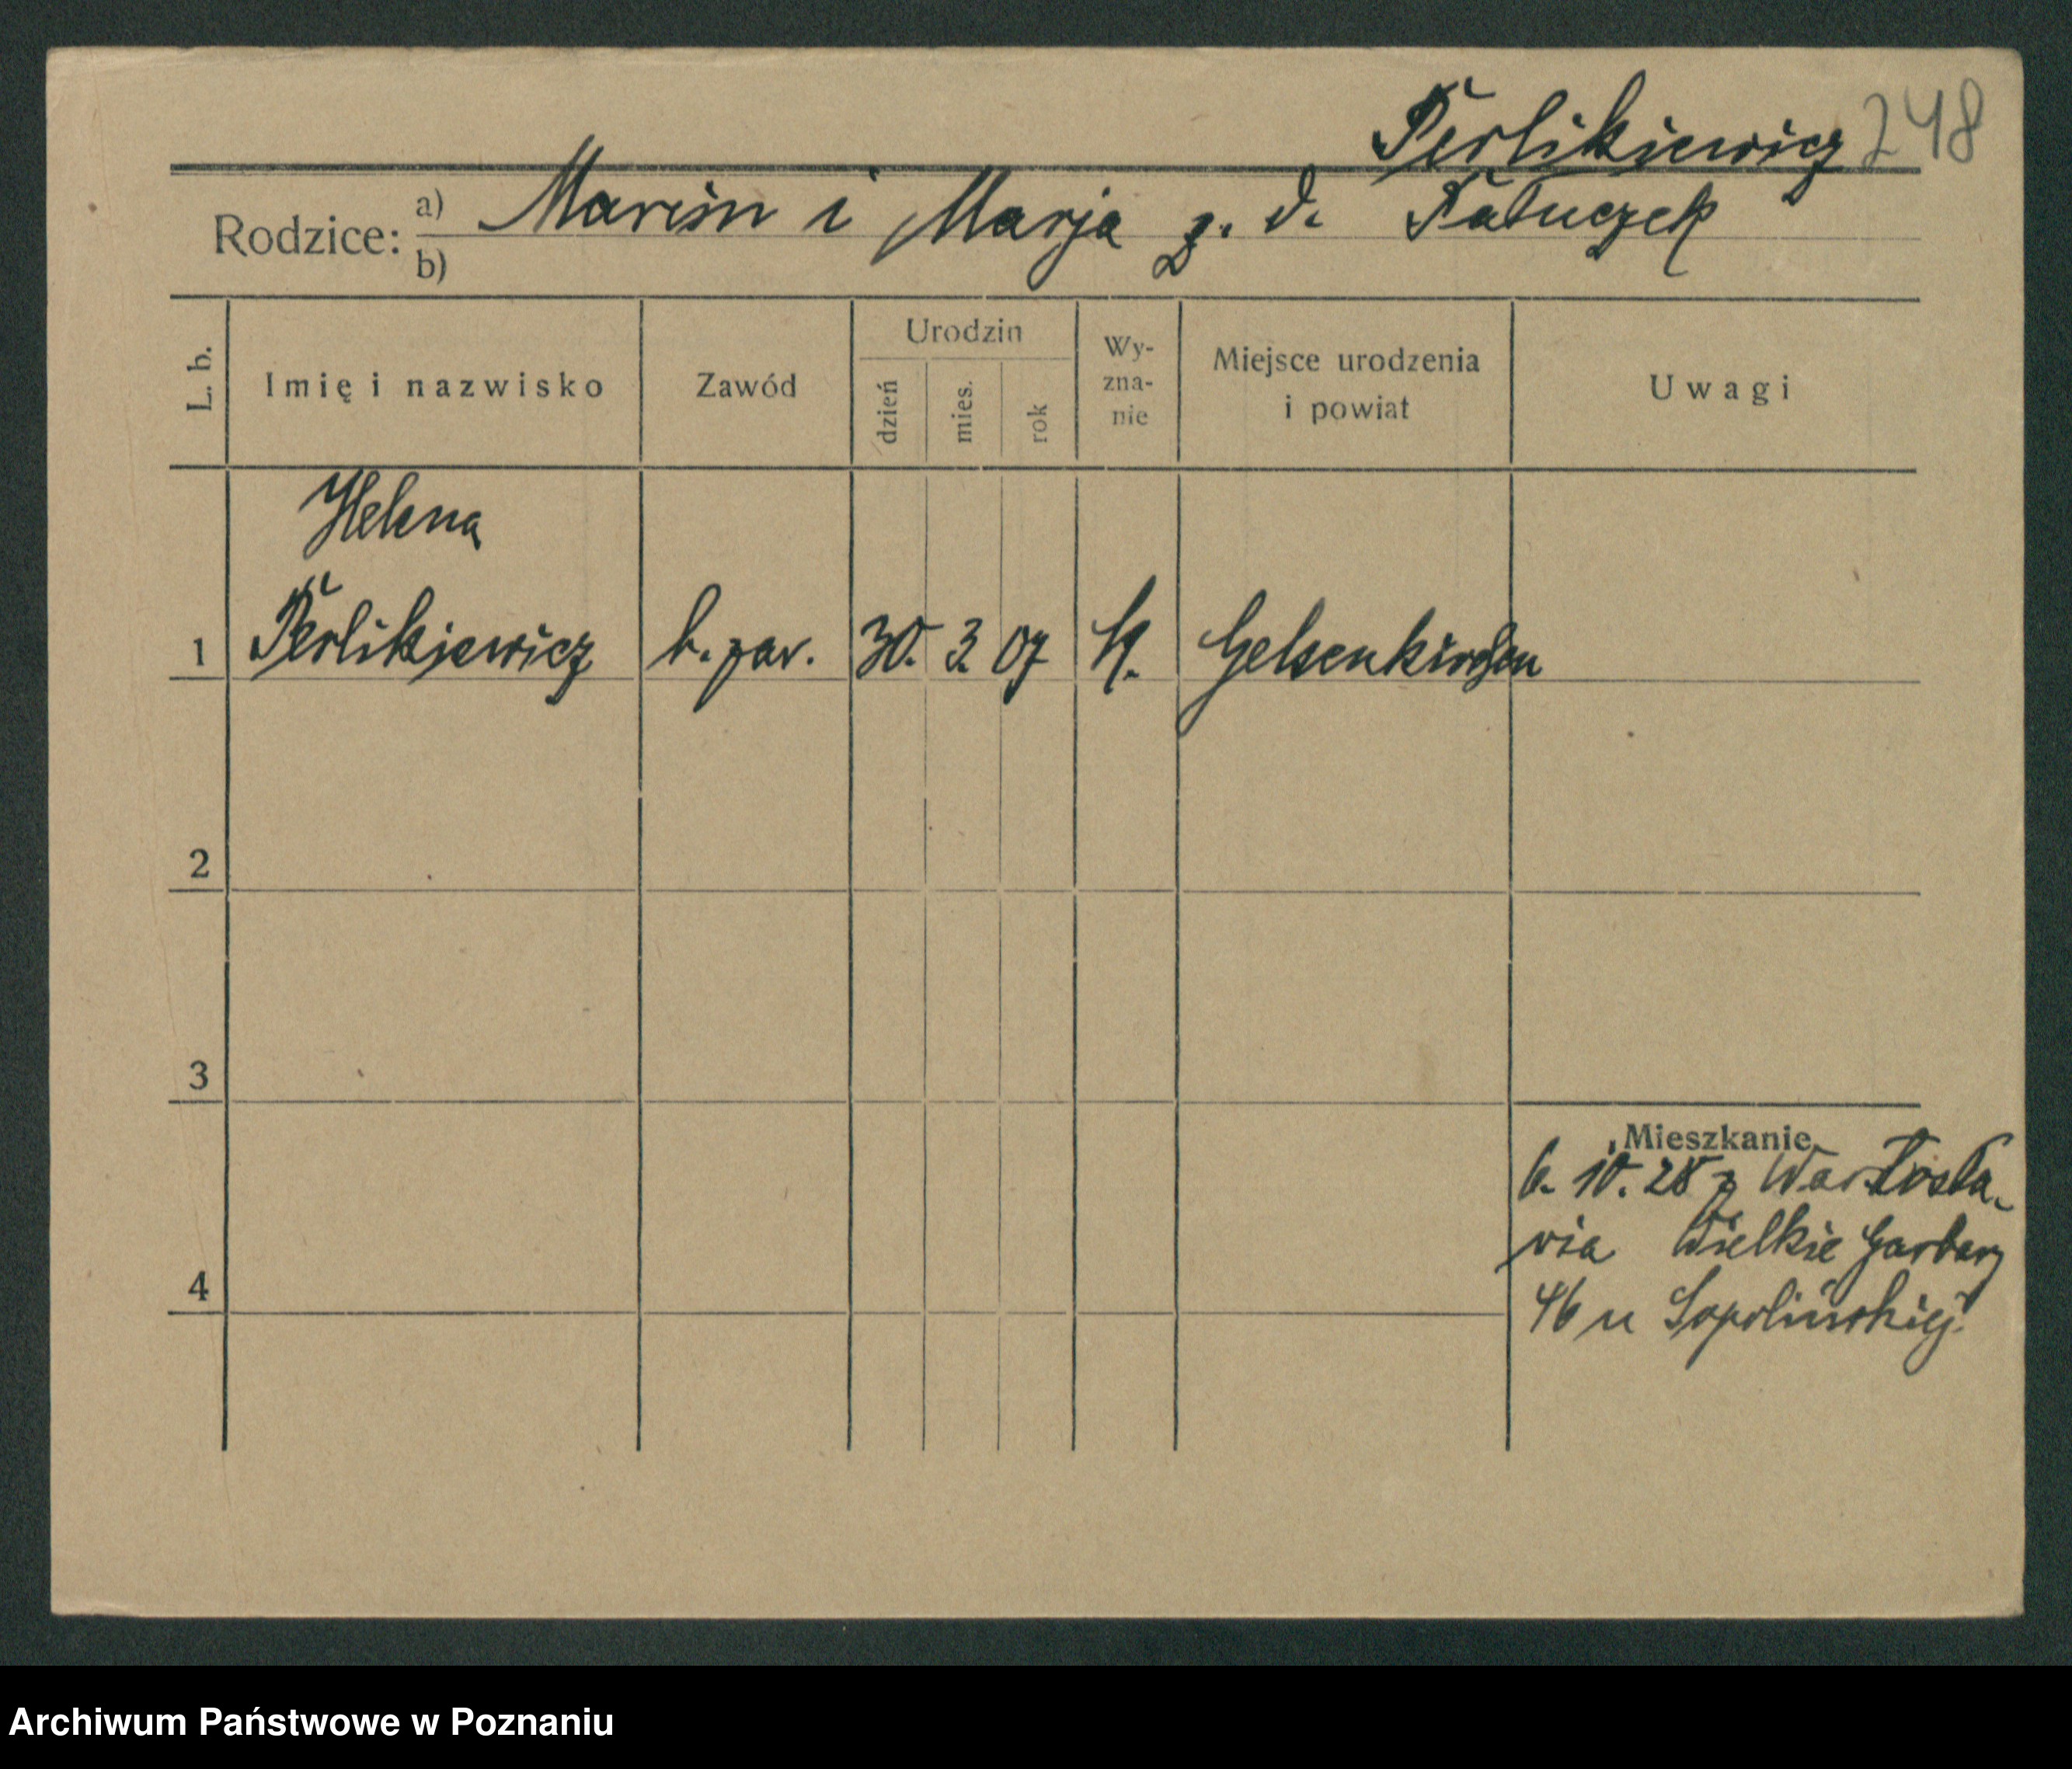 Perlikiewicz 248
Rodzice: a) Marcin i Marja z. d. Ratuczek
b)
L. b.
Imię i nazwisko
Zawód
Urodzin
dzień
mies.
rok
Wy-
zna-
nie
Miejsce urodzenia
i powiat
Uwagi
Helena
1 Perlikiewicz b. zaw. 30. 3. 07 Gelsenkirchen
2
3
4
Mieszkanie
6. 10. 28 z Wartosła-
wia Wielkie Garbary
46 u
Archiwum Państwowe w Poznaniu